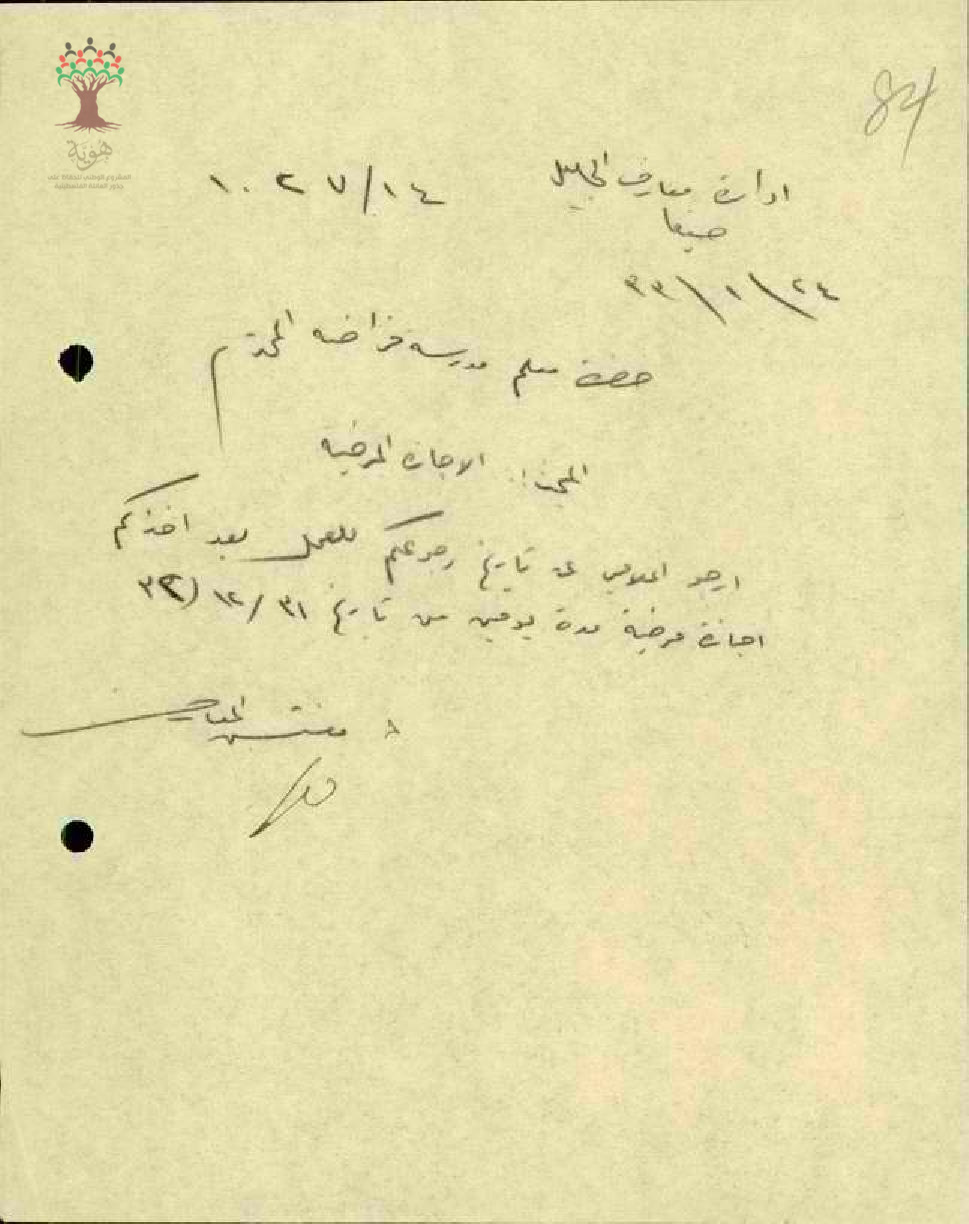 84
هوية
المشروع الوطني للحفاظ على
جذور العائلة الفلسطينية
ادارة معارف الجليل
١٤/١٠٢٧
صيفا
٢٤/١/٣٣
حضرة معلم مدرسة فراضه المحترم
المبحث: الاجازة المرضية
ارجو اعلامي عن تاريخ رجوعكم للعمل بعد اخذكم
اجازة مرضية مدة يومين من تاريخ ٣١/١٢/٣٢
مفتش المعارف